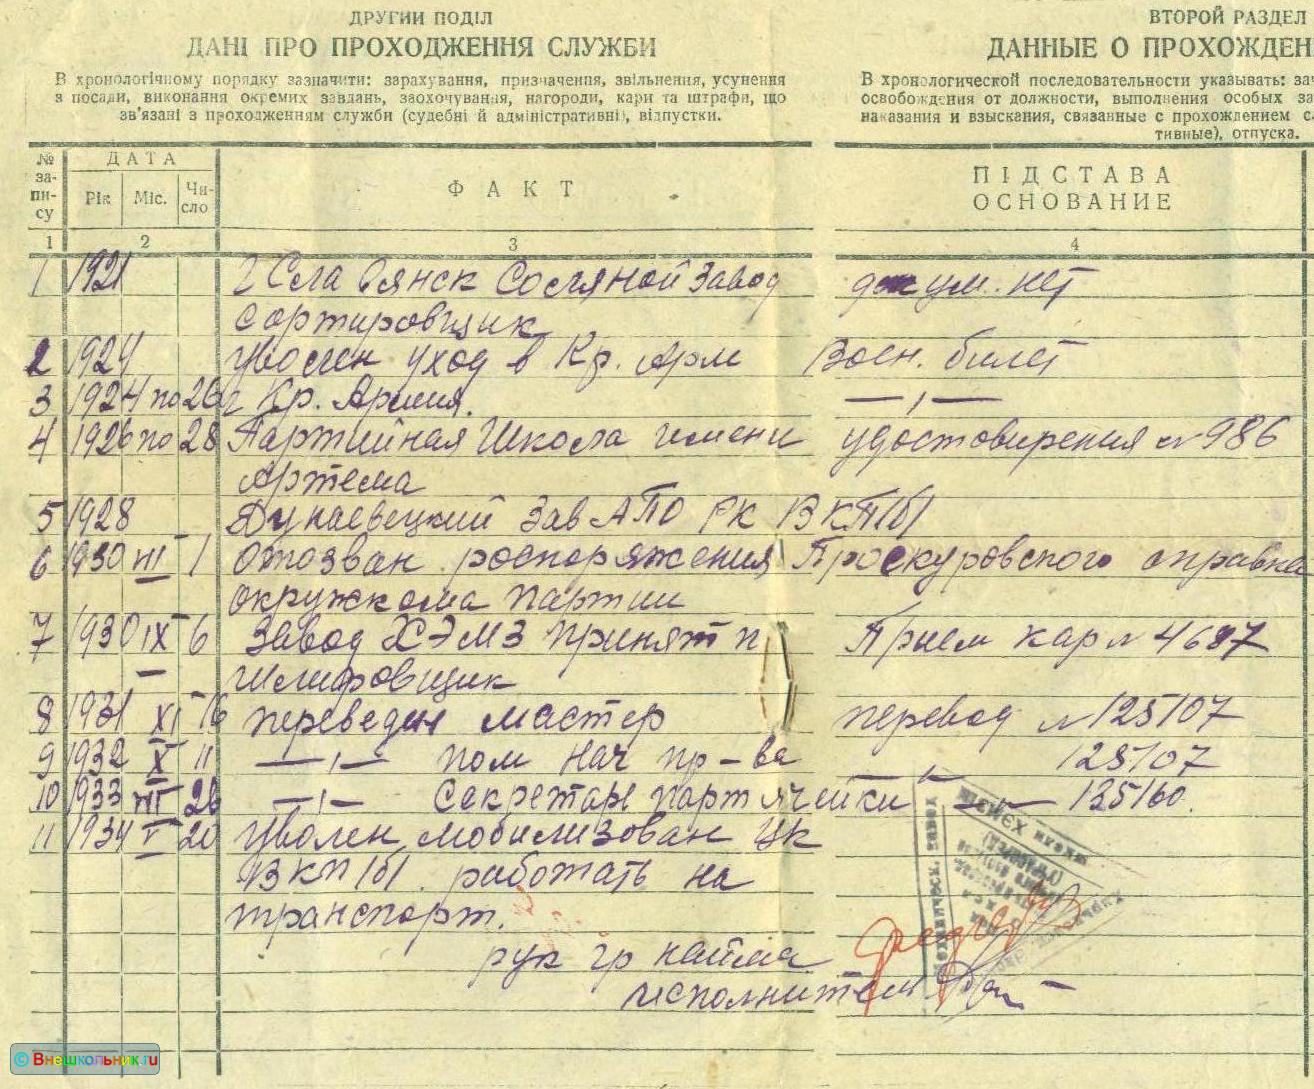 ДРУГИЙ ПОДІЛ
ДАНІ ПРО ПРОХОДЖЕННЯ СЛУЖБИ
В хронологічному порядку зазначити: зарахування, призначення, звільнення, усунення
з посади, виконання окремих завдань, заохочування, нагороди, кари та штрафи, що
зв'язані з проходженням служби (судебні й адміністративні), відпустки.
ВТОРОЙ РАЗДЕЛ
ДАННЫЕ О ПРОХОЖДЕН
В хронологической последовательности указывать: за
освобождения от должности, выполнения особых за
наказания и взыскания, связанные с прохождением с
тивные), отпуска.
№ за-пи-су
ДАТА
Рік Міс. Чи-сло
ФАКТ
ПІДСТАВА
ОСНОВАНИЕ
1 2 3 4
1 1921 г Славянск Соляной Завод докум. нет
сортировщик
2 1924 Уволен уход в Кр. Арм Воен. билет
3 1924 по 26 г Кр. Армия. — „ —
4 1926 по 28 Партийная Школа имени удостовирения № 986
Артема
5 1928 Дунаевецкий Зав АПО РК ВКП/б/
6 1930 III 1 Отозван роспоряжения Проскуровского справка
окружкома партии
7 1930 IX 6 Завод ХЭМЗ принят п Прием кар № 4687
шлифовщик
8 1931 XI 16 переведен мастер перевод № 125107
9 1932 X 11 — „ — пом нач пр-ва — „ — 125107
10 1933 III 26 — „ — Секретарь партячейки — „ — 135160.
11 1934 V 20 Уволен мобилизован ЦК
ВКП/б/. работать на
транспорт.
рук гр найма
исполнитель
© Внешкольник.ru